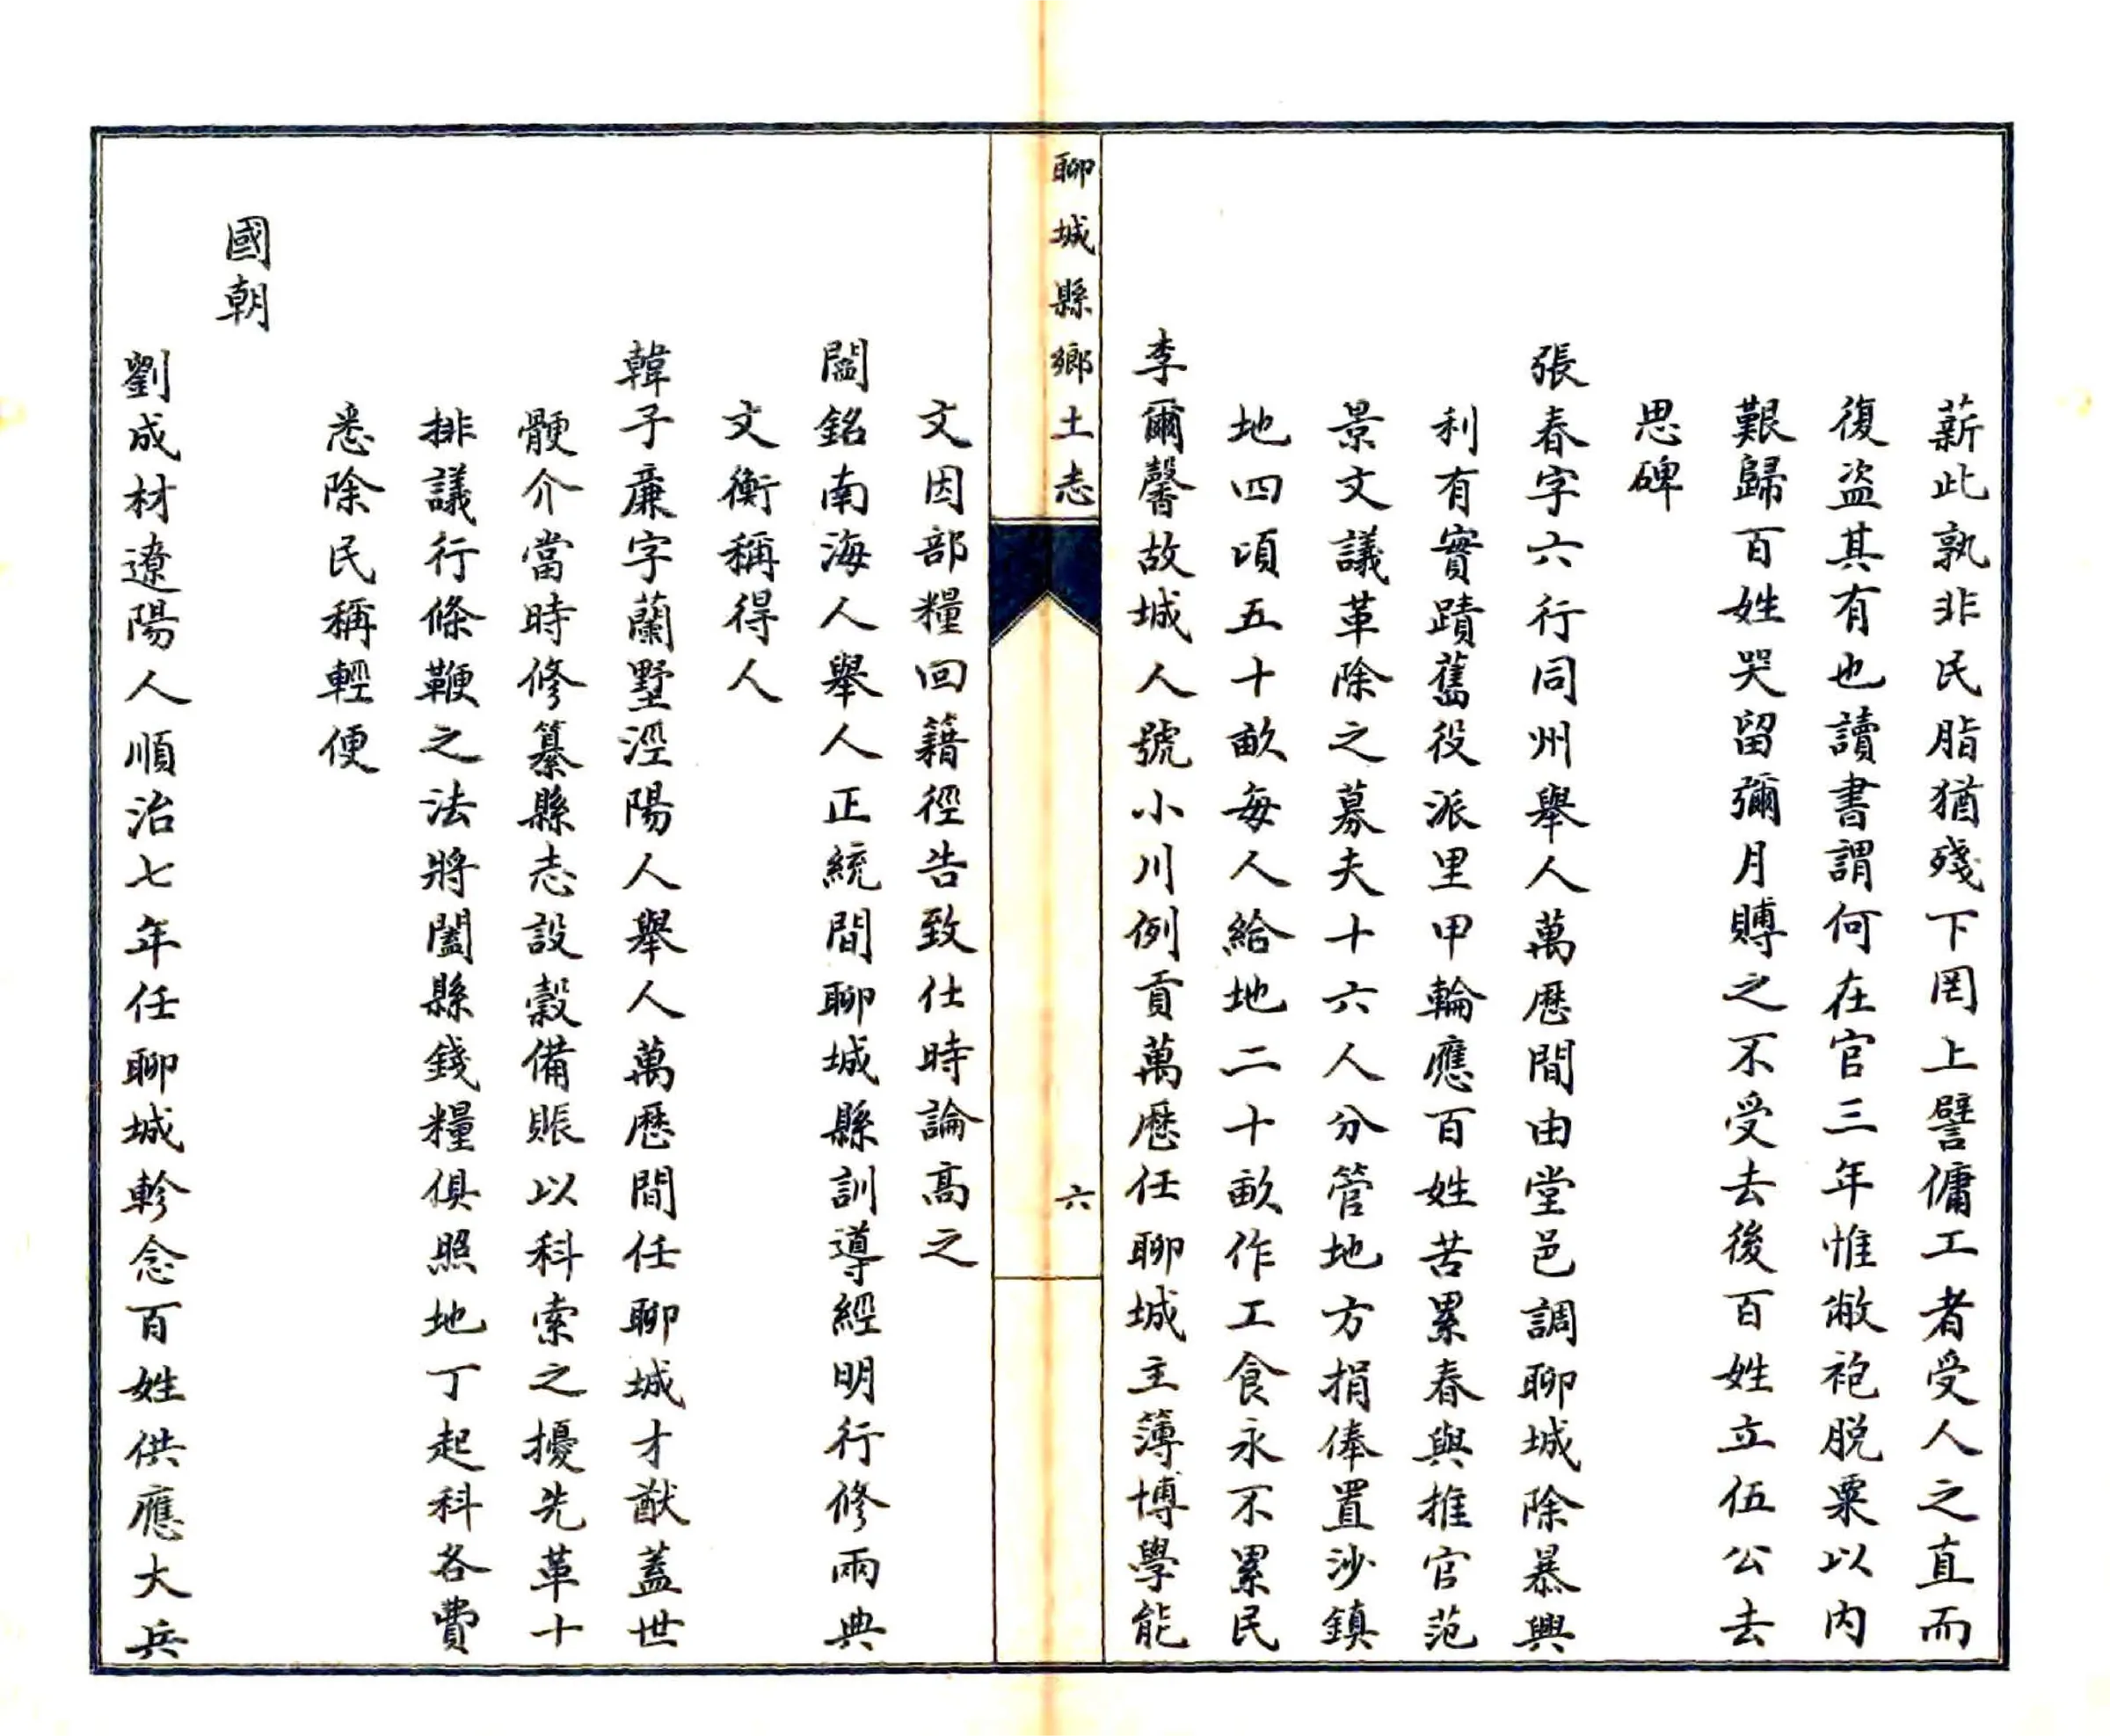 薪此孰非民脂猶殘下罔上譬傭工者受人之直而
復盜其有也讀書謂何在官三年惟敝袍脱粟以内
艱歸百姓哭留彌月賻之不受去後百姓立伍公去
思碑
張春字六行同州舉人萬歷間由堂邑調聊城除暴興
利有實蹟舊役派里甲輪應百姓苦累春與推官范
景文議革除之募夫十六人分管地方捐俸置沙鎮
地四頃五十畝每人給地二十畝作工食永不累民
李爾馨故城人號小川例貢萬歷任聊城主簿博學能
聊城縣鄉土志
六
文因部糧回籍徑告致仕時論高之
闔銘南海人舉人正統間聊城縣訓導經明行修兩典
文衡稱得人
韓子廉字蘭墅涇陽人舉人萬歷間任聊城才猷蓋世
骾介當時修纂縣志設穀備賬以科索之擾先革十
排議行條鞭之法將闔縣錢糧俱照地丁起科各費
悉除民稱輕便
國朝
劉成材遼陽人順治七年任聊城軫念百姓供應大兵